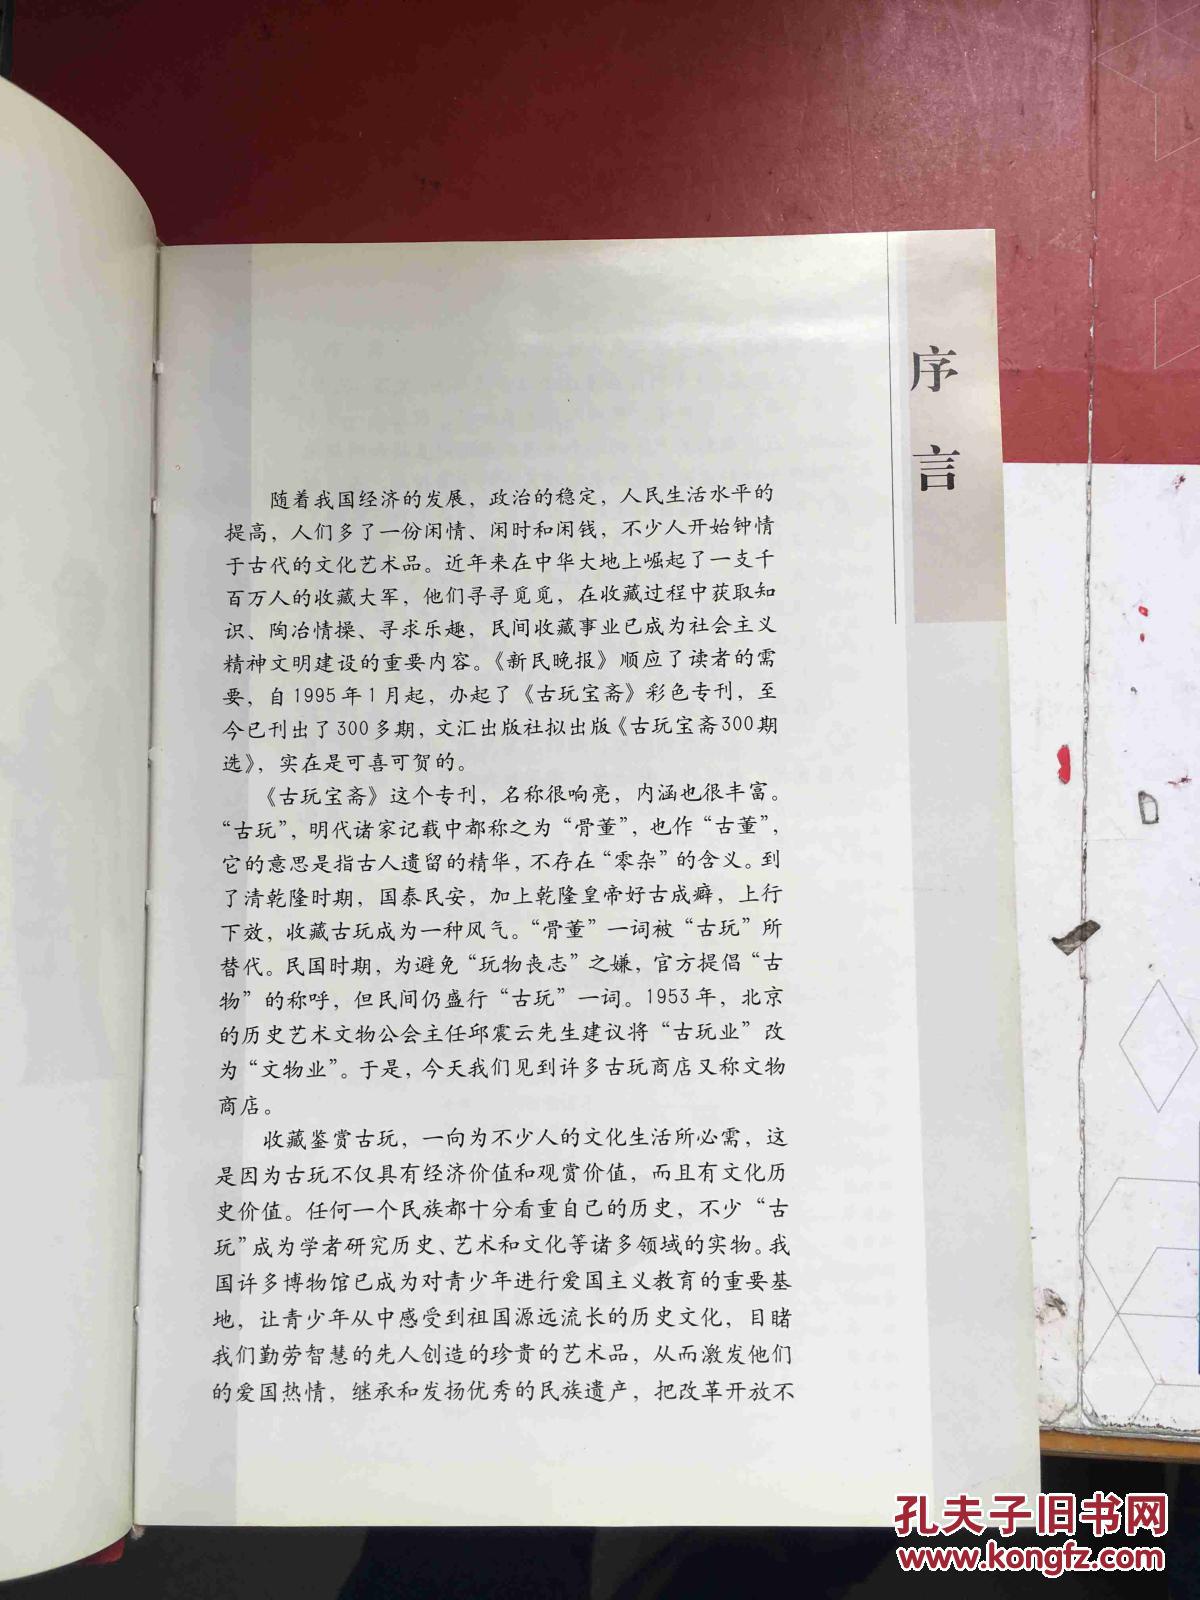 序言
随着我国经济的发展，政治的稳定，人民生活水平的
提高，人们多了一份闲情、闲时和闲钱，不少人开始钟情
于古代的文化艺术品。近年来在中华大地上崛起了一支千
百万人的收藏大军，他们寻寻觅觅，在收藏过程中获取知
识、陶冶情操、寻求乐趣，民间收藏事业已成为社会主义
精神文明建设的重要内容。《新民晚报》顺应了读者的需
要，自1995年1月起，办起了《古玩宝斋》彩色专刊，至
今已刊出了300多期，文汇出版社拟出版《古玩宝斋300期
选》，实在是可喜可贺的。
《古玩宝斋》这个专刊，名称很响亮，内涵也很丰富。
“古玩”，明代诸家记载中都称之为“骨董”，也作“古董”，
它的意思是指古人遗留的精华，不存在“零杂”的含义。到
了清乾隆时期，国泰民安，加上乾隆皇帝好古成癖，上行
下效，收藏古玩成为一种风气。“骨董”一词被“古玩”所
替代。民国时期，为避免“玩物丧志”之嫌，官方提倡“古
物”的称呼，但民间仍盛行“古玩”一词。1953年，北京
的历史艺术文物公会主任邱震云先生建议将“古玩业”改
为“文物业”。于是，今天我们见到许多古玩商店又称文物
商店。
收藏鉴赏古玩，一向为不少人的文化生活所必需，这
是因为古玩不仅具有经济价值和观赏价值，而且有文化历
史价值。任何一个民族都十分看重自己的历史，不少“古
玩”成为学者研究历史、艺术和文化等诸多领域的实物。我
国许多博物馆已成为对青少年进行爱国主义教育的重要基
地，让青少年从中感受到祖国源远流长的历史文化，目睹
我们勤劳智慧的先人创造的珍贵的艺术品，从而激发他们
的爱国热情，继承和发扬优秀的民族遗产，把改革开放不
孔夫子旧书网
www.kongfz.com